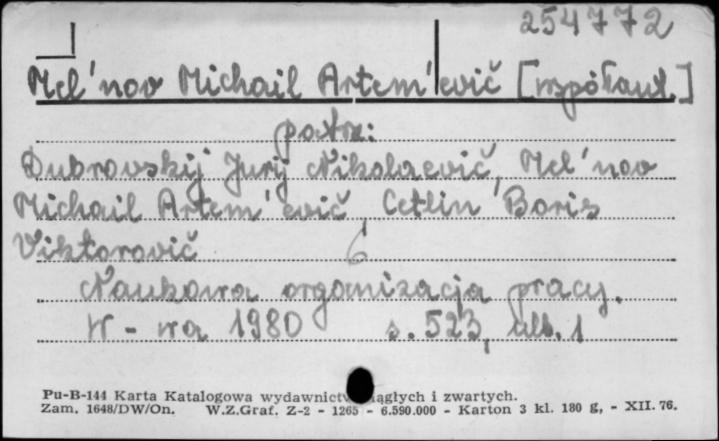 254772
Mel'nov Michail Artem'evič [współaut.]
patrz:
Dubrovskij Jurij Nikolaevič, Mel'nov
Michail Artem'evič, Cetlin Boris
Viktorovič
Naukowa organizacja pracy.
W-wa 1980 s. 523, alb. 1
Pu-B-144 Karta Katalogowa wydawnictw ciągłych i zwartych.
Zam. 1648/DW/On. W.Z.Graf. Z-2 - 1265 - 6.590.000 - Karton 3 kl. 180 g, - XII. 76.